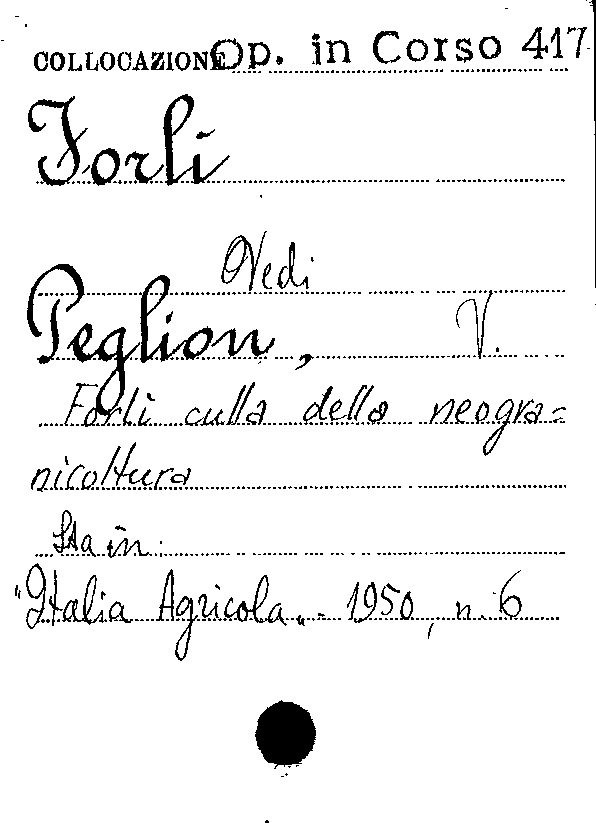 COLLOCAZIONE Op. in Corso 417
Forlì
Vedi
Peglion, V.
Forlì culla della neogra=
nicoltura
Sta in:
"Italia Agricola" - 1950, n. 6